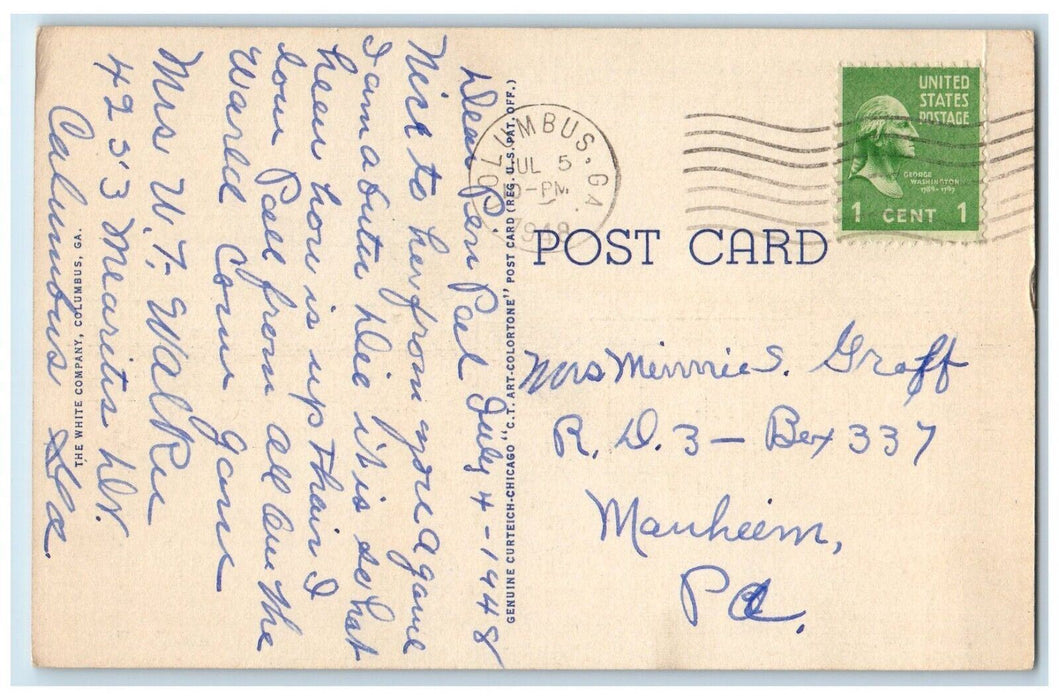 Dear Pen Pal July 4-1948
Nice to her from you a game
I am a buta Die it is so hat
heer how is up thair I
love Pall from all over the
Warld Come game
Mrs W.T. Walker
4253 Mearitus Dr.
Calumbus Ga.
THE WHITE COMPANY, COLUMBUS, GA.
GENUINE CURTEICH-CHICAGO "C.T. ART-COLORTONE" POST CARD (REG. U.S. PAT. OFF.)
COLUMBUS, GA.
JUL 5
PM
1948
UNITED
STATES
POSTAGE
GEORGE
WASHINGTON
1789-1797
1 CENT 1
POST CARD
Mrs Minnie S. Graff
R. D. 3 - Box 337
Manheim,
Pa.